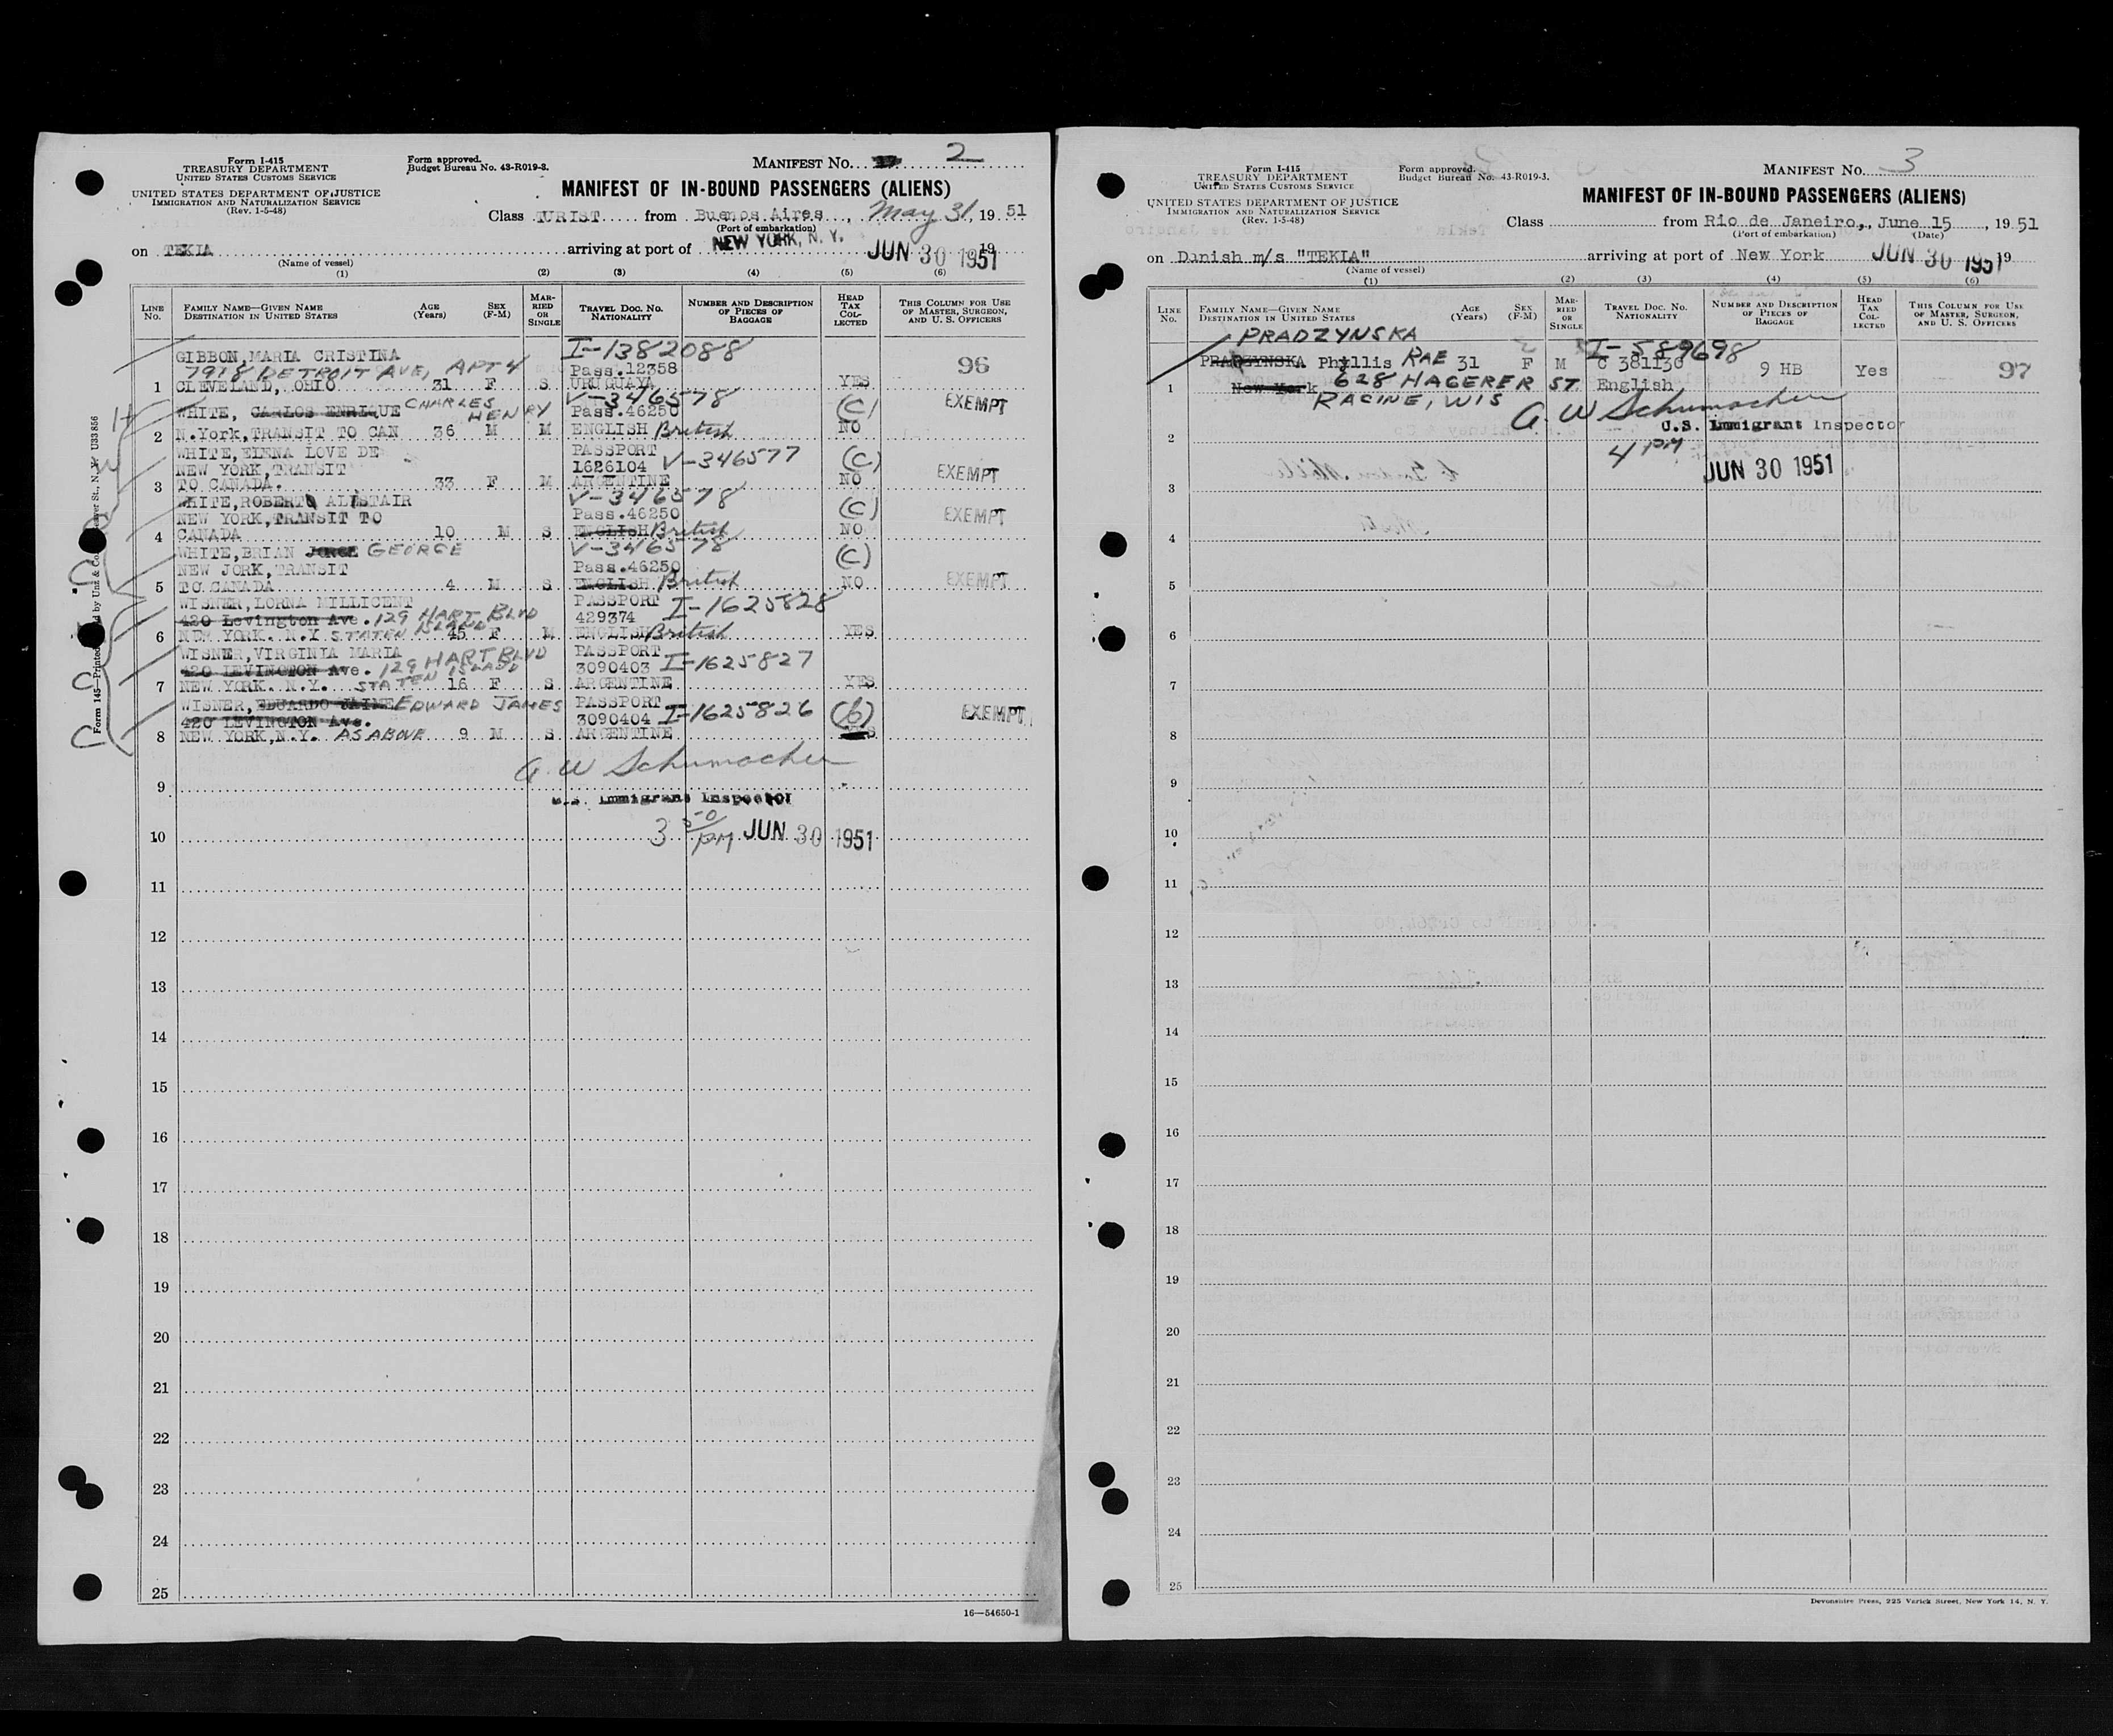 Form I-415
TREASURY DEPARTMENT
UNITED STATES CUSTOMS SERVICE
UNITED STATES DEPARTMENT OF JUSTICE
IMMIGRATION AND NATURALIZATION SERVICE
(Rev. 1-5-48)
Form approved.
Budget Bureau No. 43-R019-3.
MANIFEST No. 2
MANIFEST OF IN-BOUND PASSENGERS (ALIENS)
Class TURIST from Buenos Aires, May 31, 19 51
(Port of embarkation)
on TEKIA arriving at port of NEW YORK, N. Y. JUN 30 1951 19
(Name of vessel)
(1) (2) (3) (4) (5) (6)
LINE No. FAMILY NAME—GIVEN NAME DESTINATION IN UNITED STATES AGE (Years) SEX (F-M) MARRIED OR SINGLE TRAVEL DOC. No. NATIONALITY NUMBER AND DESCRIPTION OF PIECES OF BAGGAGE HEAD TAX COLLECTED THIS COLUMN FOR USE OF MASTER, SURGEON, AND U. S. OFFICERS
GIBBON, MARIA CRISTINA I-1382088
7918 DETROIT AVE, APT 4 Pass.12358 96
1 CLEVELAND, OHIO 31 F S URUGUAYA YES
WHITE, CARLOS ENRIQUE CHARLES HENRY V-346578 Pass.46250 (C) EXEMPT
2 N.York, TRANSIT TO CAN 36 M M ENGLISH British NO
WHITE, ELENA LOVE DE PASSPORT
NEW YORK, TRANSIT 1626104 V-346577 (C) EXEMPT
3 TO CANADA. 33 F M ARGENTINE NO
WHITE, ROBERTO ALISTAIR V-346578
NEW YORK, TRANSIT TO Pass.46250 (C) EXEMPT
4 CANADA 10 M S ENGLISH British NO
WHITE, BRIAN JORGE GEORGE V-346578
NEW JORK, TRANSIT Pass.46250 (C)
5 TO CANADA 4 M S ENGLISH British NO EXEMPT
WISNER, LORNA MILLICENT PASSPORT I-1625828
420 Levington Ave. 129 HART BLVD 429374
6 NEW YORK. N.Y STATEN ISLAND 45 F M ENGLISH British YES
WISNER, VIRGINIA MARIA PASSPORT
420 LEVINGTON Ave. 129 HART BLVD 3090403 I-1625827
7 NEW YORK. N.Y. STATEN ISLAND 16 F S ARGENTINE YES
WISNER, EDUARDO JAIME EDWARD JAMES PASSPORT
420 LEVINGTON Ave. 3090404 I-1625826 (b) EXEMPT
8 NEW YORK, N.Y. AS ABOVE 9 M S ARGENTINE YES
A. W Schumacher
9
U.S. Immigrant Inspector
10 3 50 PM JUN 30 1951
11
12
13
14
15
16
17
18
19
20
21
22
23
24
25
16—54650-1
Form I-415
TREASURY DEPARTMENT
UNITED STATES CUSTOMS SERVICE
UNITED STATES DEPARTMENT OF JUSTICE
IMMIGRATION AND NATURALIZATION SERVICE
(Rev. 1-5-48)
Form approved.
Budget Bureau No. 43-R019-3.
MANIFEST No. 3
MANIFEST OF IN-BOUND PASSENGERS (ALIENS)
Class from Rio de Janeiro, June 15, 19 51
(Port of embarkation) (Date)
on Danish m/s "TEKIA" arriving at port of New York JUN 30 1951 19
(Name of vessel)
(1) (2) (3) (4) (5) (6)
LINE No. FAMILY NAME—GIVEN NAME DESTINATION IN UNITED STATES AGE (Years) SEX (F-M) MARRIED OR SINGLE TRAVEL DOC. No. NATIONALITY NUMBER AND DESCRIPTION OF PIECES OF BAGGAGE HEAD TAX COLLECTED THIS COLUMN FOR USE OF MASTER, SURGEON, AND U. S. OFFICERS
PRADZYNSKA I-589698
PRARZYNSKA Phyllis RAE 31 F M C 381136 9 HB Yes 97
1 New York 628 HAGERER ST. English
RACINE, WIS A. W Schumacher
U.S. Immigrant Inspector
2 4 PM
JUN 30 1951
3
4
5
6
7
8
9
10
11
12
13
14
15
16
17
18
19
20
21
22
23
24
25
Devonshire Press, 225 Varick Street, New York 14, N. Y.